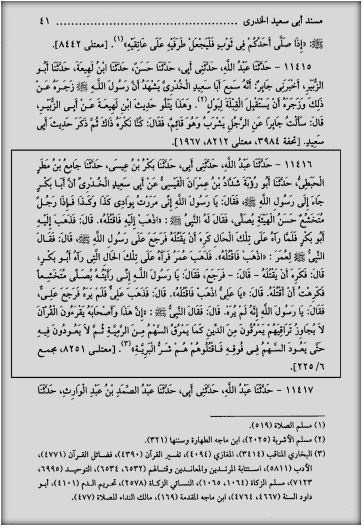 مسند أبى سعيد الخدرى ........................................ ٤١
ﷺ: «إِذَا صَلَّى أَحَدُكُمْ فِى ثَوْبٍ فَلْيَجْعَلْ طَرَفَيْهِ عَلَى عَاتِقَيْهِ»(١). [معتلى ٨٤٤٢].
١١٤١٥ – حَدَّثَنَا عَبْدُ اللَّهِ، حَدَّثَنِى أَبِى، حَدَّثَنَا حَسَنٌ، حَدَّثَنَا ابْنُ لَهِيعَةَ، حَدَّثَنَا أَبُو
الزُّبَيْرِ، أَخْبَرَنِى جَابِرٌ: أَنَّهُ سَمِعَ أَبَا سَعِيدٍ الْخُدْرِىَّ يَشْهَدُ أَنَّ رَسُولَ اللَّهِ ﷺ زَجَرَهُ عَنْ
ذَلِكَ وَزَجَرَهُ أَنْ يَسْتَقْبِلَ الْقِبْلَةَ لِبَوْلٍ(٢). وَهَذَا يَتْلُو حَدِيثَ ابْنِ لَهِيعَةَ عَنْ أَبِى الزُّبَيْرِ،
قَالَ: سَأَلْتُ جَابِراً عَنِ الرَّجُلِ يَشْرَبُ وَهُوَ قَائِمٌ، فَقَالَ: كُنَّا نَكْرَهُ ذَاكَ ثُمَّ ذَكَرَ حَدِيثَ أَبِى
سَعِيدٍ. [تحفة ٣٩٨٤، معتلى ٨٢١٢، ١٩٦٧].
١١٤١٦ – حَدَّثَنَا عَبْدُ اللَّهِ، حَدَّثَنِى أَبِى، حَدَّثَنَا بَكْرُ بْنُ عِيسَى، حَدَّثَنَا جَامِعُ بْنُ مَطَرٍ
الْحَبَطِىُّ، حَدَّثَنَا أَبُو رُؤْبَةَ شَدَّادُ بْنُ عِمْرَانَ الْقَيْسِىُّ عَنْ أَبِى سَعِيدٍ الْخُدْرِىِّ أَنَّ أَبَا بَكْرٍ
جَاءَ إِلَى رَسُولِ اللَّهِ ﷺ، فَقَالَ: يَا رَسُولَ اللَّهِ إِنِّى مَرَرْتُ بِوَادِى كَذَا وَكَذَا فَإِذَا رَجُلٌ
مُتَخَشِّعٌ حَسَنُ الْهَيْئَةِ يُصَلِّى، فَقَالَ لَهُ النَّبِىُّ ﷺ: «اذْهَبْ إِلَيْهِ فَاقْتُلْهُ». قَالَ: فَذَهَبَ إِلَيْهِ
أَبُو بَكْرٍ فَلَمَّا رَآهُ عَلَى تِلْكَ الْحَالِ كَرِهَ أَنْ يَقْتُلَهُ فَرَجَعَ إِلَى رَسُولِ اللَّهِ ﷺ، قَالَ: فَقَالَ
النَّبِىُّ ﷺ لِعُمَرَ: «اذْهَبْ فَاقْتُلْهُ». فَذَهَبَ عُمَرُ فَرَآهُ عَلَى تِلْكَ الْحَالِ الَّتِى رَآهُ أَبُو بَكْرٍ،
قَالَ: فَكَرِهَ أَنْ يَقْتُلَهُ – قَالَ: – فَرَجَعَ، فَقَالَ: يَا رَسُولَ اللَّهِ إِنِّى رَأَيْتُهُ يُصَلِّى مُتَخَشِّعاً
فَكَرِهْتُ أَنْ أَقْتُلَهُ. قَالَ: «يَا عَلِىُّ اذْهَبْ فَاقْتُلْهُ». قَالَ: فَذَهَبَ عَلِىٌّ فَلَمْ يَرَهُ فَرَجَعَ عَلِىٌّ،
فَقَالَ: يَا رَسُولَ اللَّهِ إِنَّهُ لَمْ يُرَهْ. قَالَ: فَقَالَ النَّبِىُّ ﷺ: «إِنَّ هَذَا وَأَصْحَابَهُ يَقْرَءُونَ الْقُرْآنَ
لاَ يُجَاوِزُ تَرَاقِيَهُمْ يَمْرُقُونَ مِنَ الدِّينِ كَمَا يَمْرُقُ السَّهْمُ مِنَ الرَّمِيَّةِ ثُمَّ لاَ يَعُودُونَ فِيهِ
حَتَّى يَعُودَ السَّهْمُ فِى فُوقِهِ فَاقْتُلُوهُمْ هُمْ شَرُّ الْبَرِيَّةِ»(٣). [معتلى ٨٢٥١، مجمع
٦/ ٢٢٥].
١١٤١٧ – حَدَّثَنَا عَبْدُ اللَّهِ، حَدَّثَنِى أَبِى، حَدَّثَنَا عَبْدُ الصَّمَدِ بْنُ عَبْدِ الْوَارِثِ، حَدَّثَنَا
(١) مسلم الصلاة (٥١٩).
(٢) مسلم الأشربة (٢٠٢٥)، ابن ماجه الطهارة وسننها (٣٢١).
(٣) البخارى المناقب (٣٤١٤)، المغازى (٤٠٩٤)، تفسير القرآن (٤٣٩٠)، فضائل القرآن (٤٧٧١)،
الأدب (٥٨١١)، استتابة المرتدين والمعاندين وقتالهم (٦٥٣٢، ٦٥٣٤)، التوحيد (٦٩٩٥،
٧١٢٣)، مسلم الزكاة (١٠٦٤، ١٠٦٥)، النسائى الزكاة (٢٥٧٨)، تحريم الدم (٤١٠١)، أبو
داود السنة (٤٦٦٧، ٤٧٦٤)، ابن ماجه المقدمة (١٦٩)، مالك النداء للصلاة (٤٧٧).